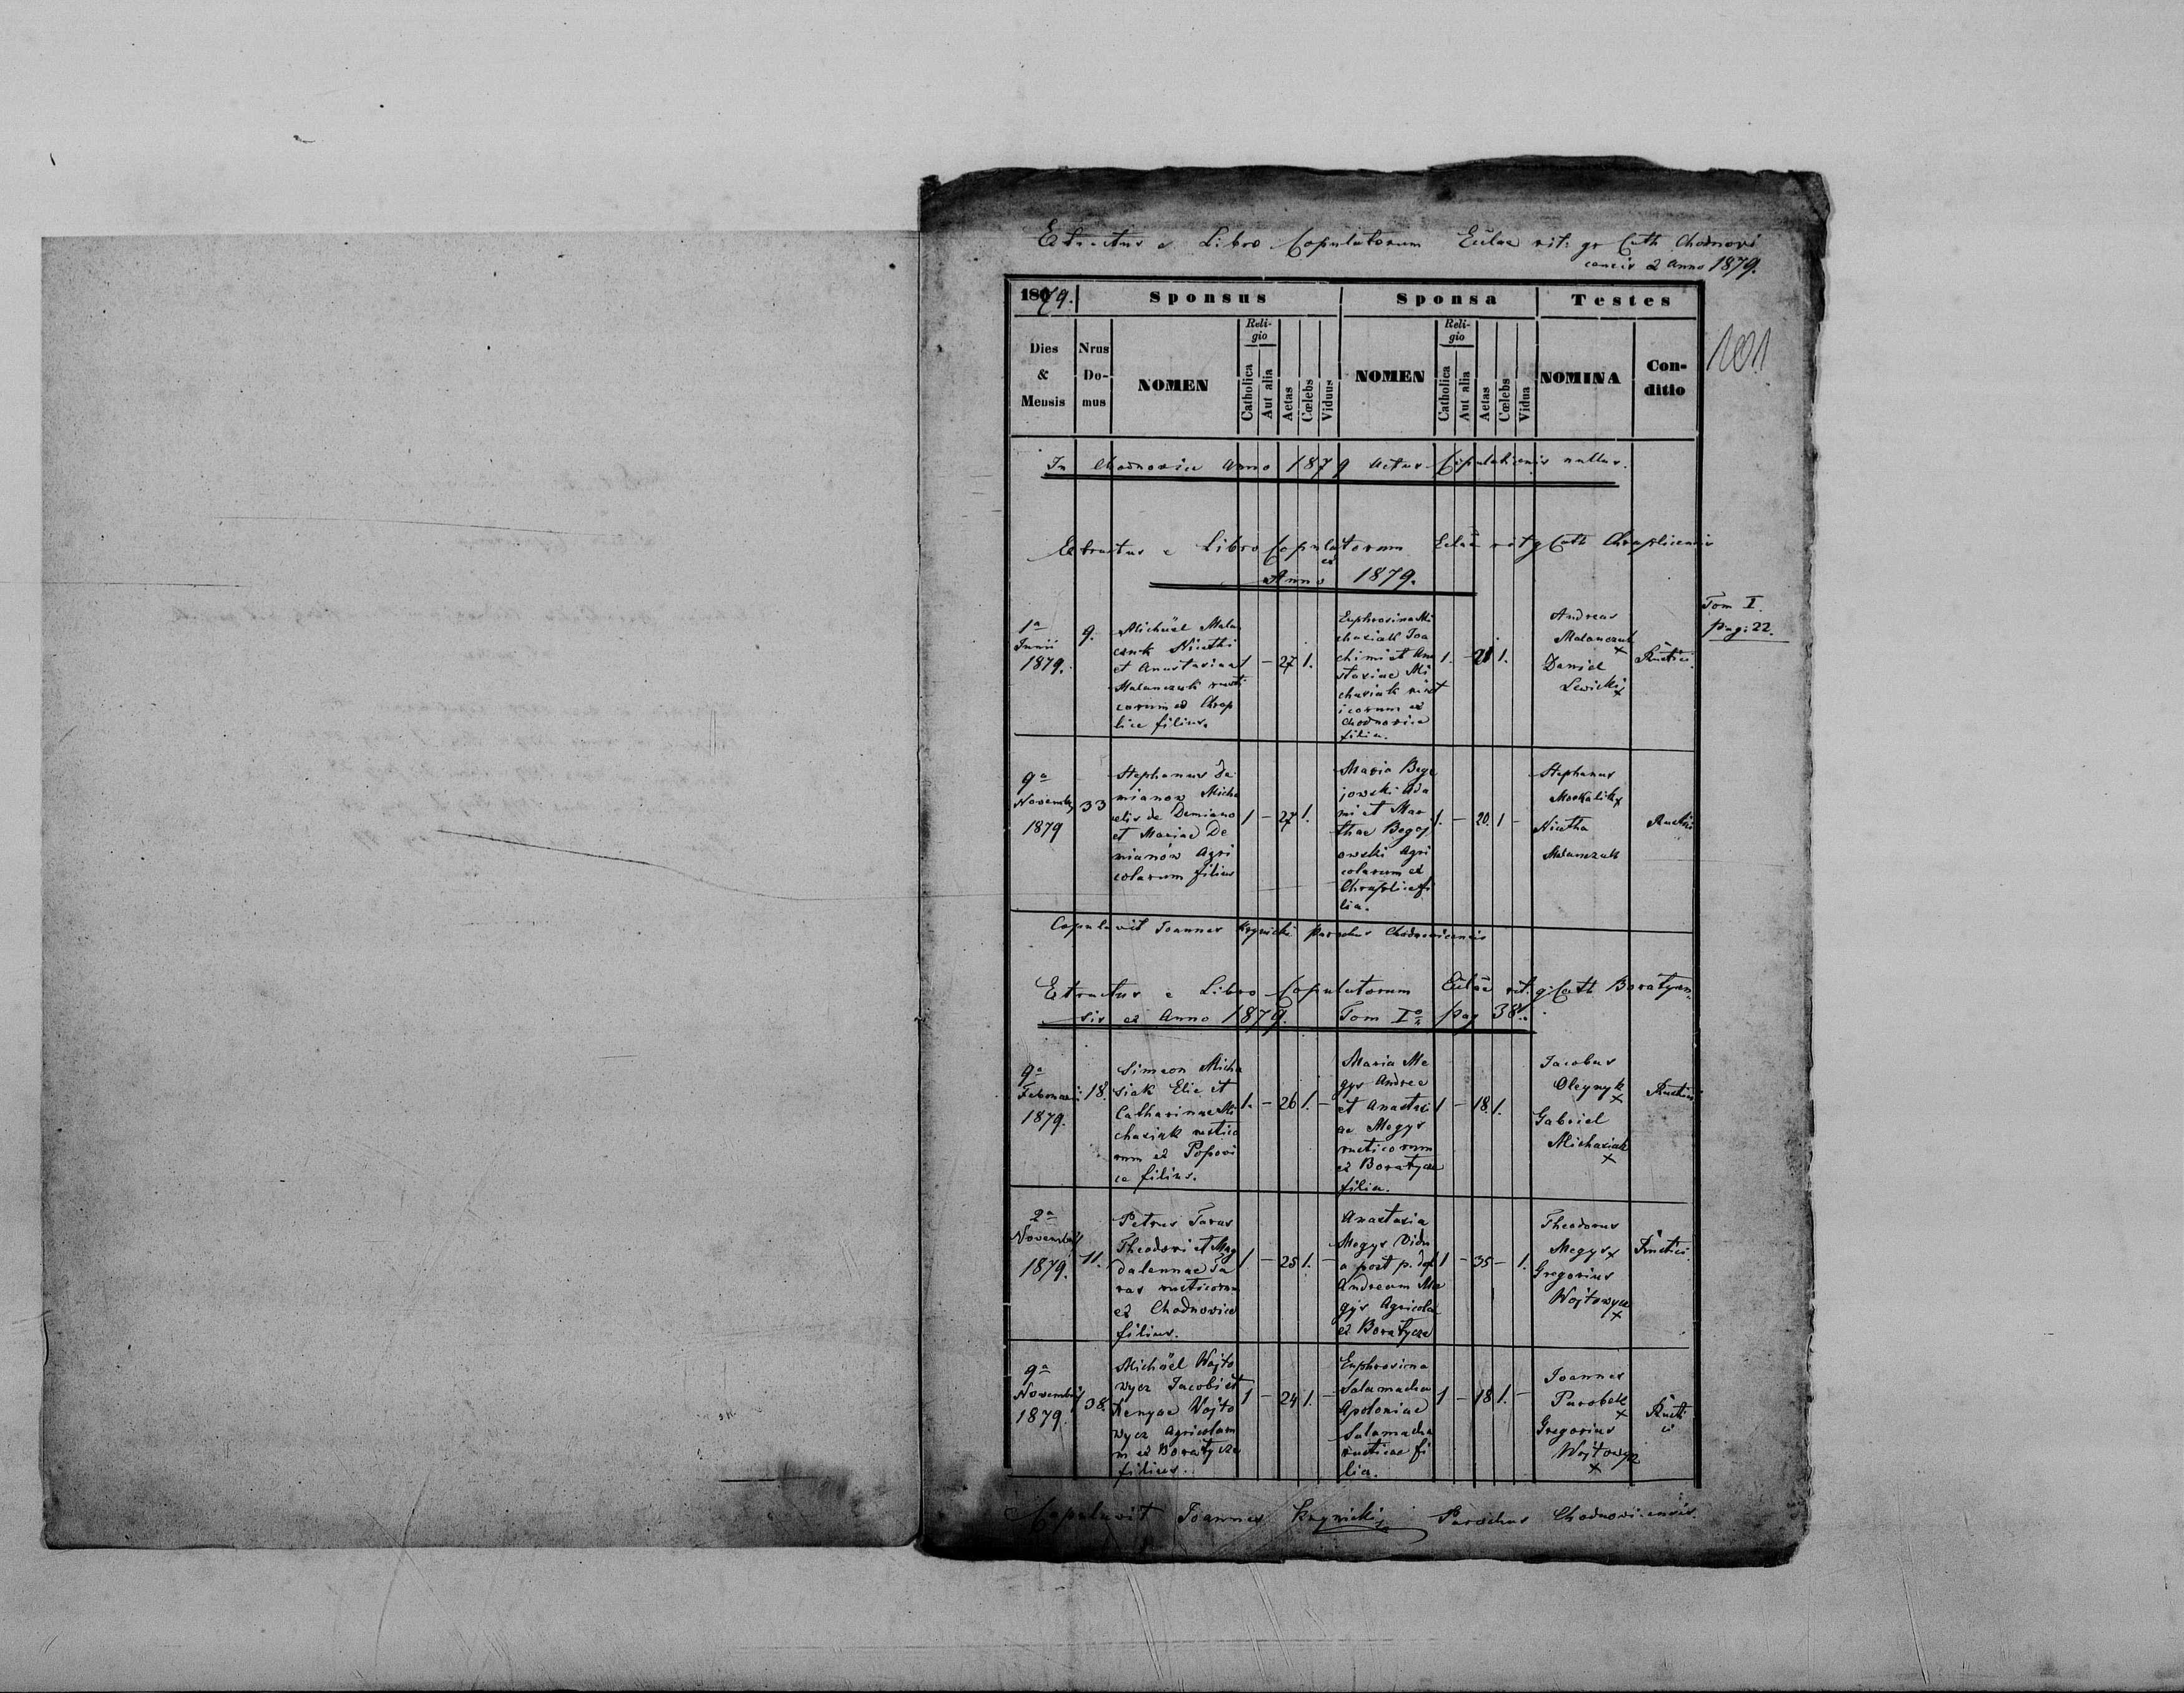 Extractus e Libro Copulatorum Eclae rit. gr Cath Chodnovi
censis a Anno 1879.
101
1879. Sponsus Sponsa Testes
Dies & Mensis
Nrus Do-mus
NOMEN
Reli-gio
Catholica
Aut alia
Aetas
Cœlebs
Viduus
NOMEN
Reli-gio
Catholica
Aut alia
Aetas
Cœlebs
Vidua
NOMINA
Con-ditio
In Chodnovice Anno 1879 Actus Copulationis nullus.
Extractus e Libro Copulatorum Eclae rit g Cath Chraplicensis
ex Anno 1879.
Tom I.
pag: 22.
1a
Junii
1879.
9.
Michael Malan
czuk Nicetki
et Anastasiae
Malanczuk rusti
corum ex Chrap
lice filius.
1 – 27 1.
Euphrosina Mi
chasiak Joa
chimi et Ana
stasiae Mi
chasiak rust
icorum ex
Chodnovice
filia.
1. – 21 1.
Andreas
Malanczuk
x
Daniel
Lewicki x
Rustici
9a
Novembris
1879
33
Stephanus De
mianow Micha
elis de Demiano
et Mariae De
mianów Agri
colarum filius
1 – 27 1.
Maria Bege
jowski Ada
mi et Mar
thae Begej
owski Agri
colarum ex
Chraplice fi
lia.
1. – 20. 1 –
Stephanus
Moskalik x
Nicetha
Malanczuk
Rustici
Copulavit Joannes Krynicki Parochus Chodnovicensis
Extractus e Libro Copulatorum Eclae rit. g. Cath Boratycen-
sis ex Anno 1879. Tom Io pag 38.
9a
Februarii
1879.
18.
Simeon Micha
siak Elie et
Catharinae Mi
chasiak rustico
rum ex Popovi
ce filius.
1. – 26 1. –
Maria Me
gys Andree
et Anastasi
ae Megys
rusticorum
ex Boratycze
filia.
1 – 18. 1.
Jacobus
Oleynyk
x
Gabriel
Michasiak
x
Rustici
2a
Novembris
1879.
11.
Petrus Taras
Theodori et Mag
dalennae Ta
ras rusticorum
ex Chodnovice
filius.
1. – 25 1. –
Anastasia
Megys Vidu
a post p. def
Andream Me
gys Agricola
ex Boratycze
1 – 35 – 1.
Theodorus
Megys x
Gregorius
Wojtowycz
x
Rustici
9a
Novembris
1879.
38.
Michael Wojto
wycz Jacobi et
Xenyae Wojto
wycz Agricolaru
m ex Boratycze
filius.
1 – 24 1. –
Euphrosina
Salamacha
Apoloniae
Salamacha
rusticae fi
lia.
1 – 18 1. –
Joannes
Parobek
x
Gregorius
Wojtowycz
x
Rusti
ci
Copulavit Joannes Krynicki Parochus Chodnovicensis.